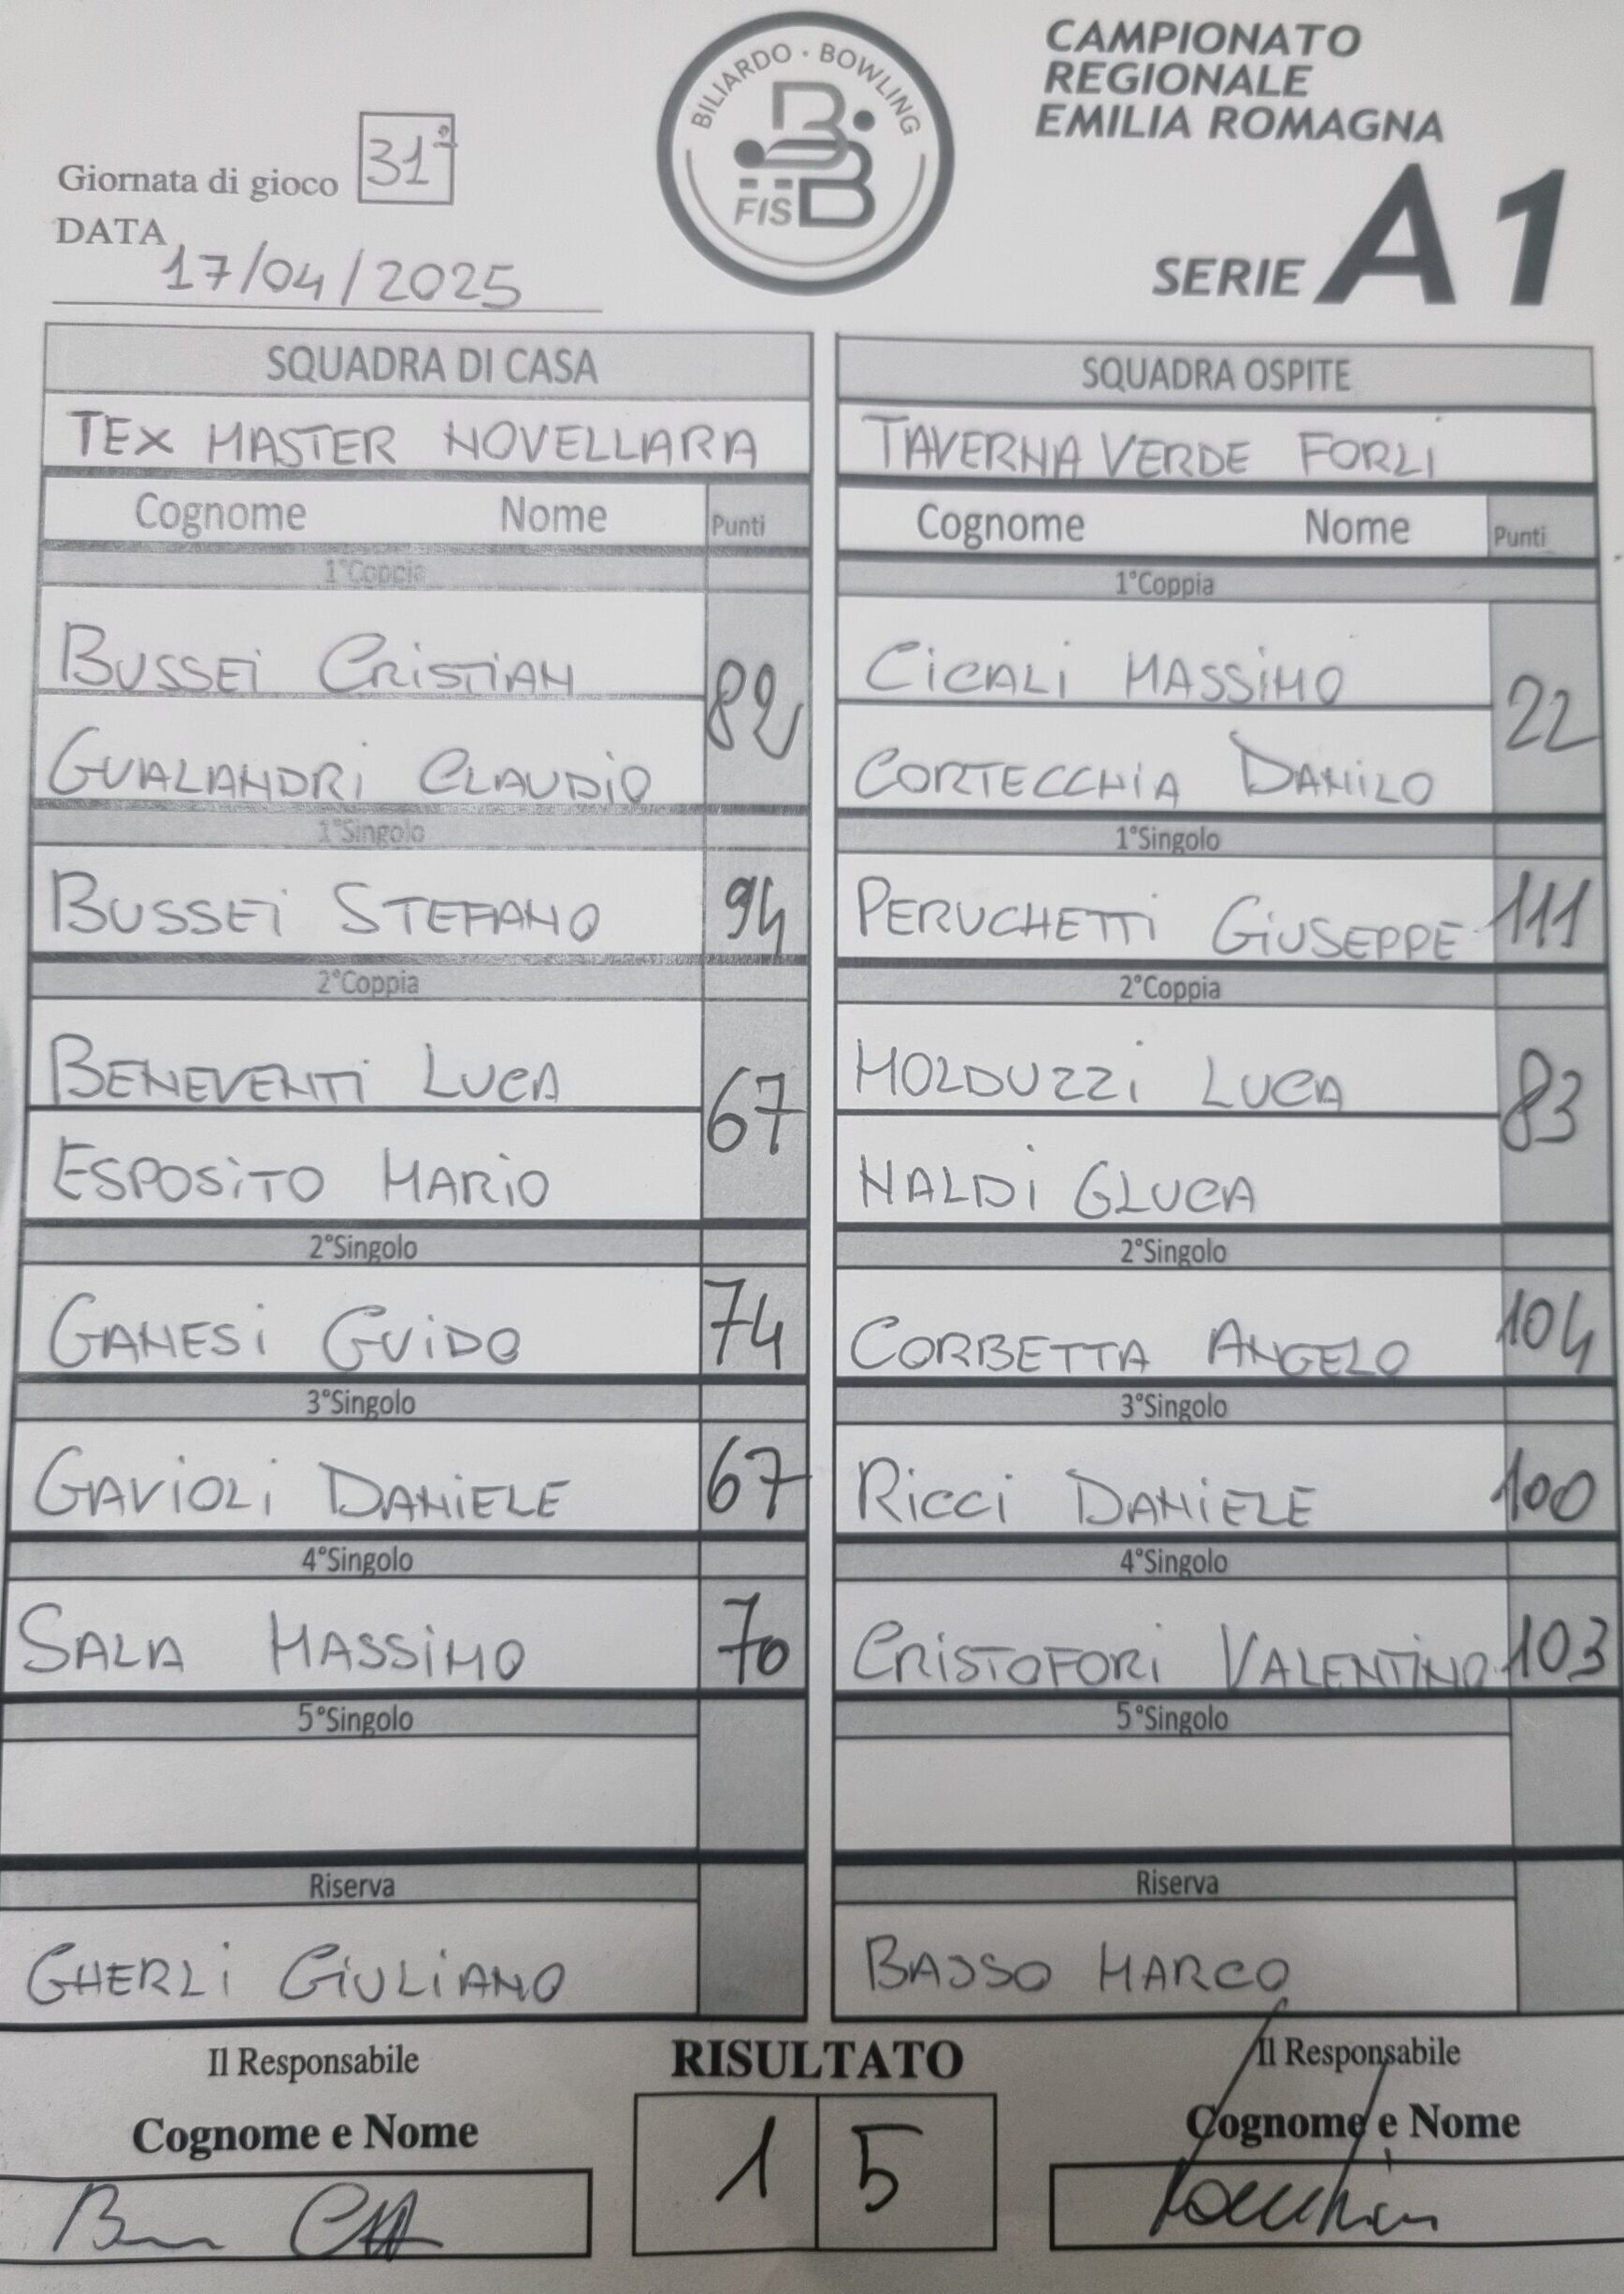 BILIARDO · BOWLING
FISBB
CAMPIONATO
REGIONALE
EMILIA ROMAGNA
SERIE A1
Giornata di gioco 31ª
DATA
17/04/2025
SQUADRA DI CASA
TEX MASTER NOVELLARA
Cognome Nome Punti
1°Coppia
BUSSEI CRISTIAN
82
GUALANDRI CLAUDIO
1°Singolo
BUSSEI STEFANO 94
2°Coppia
BENEVENTI LUCA
67
ESPOSITO MARIO
2°Singolo
GANESI GUIDO 74
3°Singolo
GAVIOLI DANIELE 67
4°Singolo
SALA MASSIMO 70
5°Singolo
Riserva
GHERLI GIULIANO
SQUADRA OSPITE
TAVERNA VERDE FORLI
Cognome Nome Punti
1°Coppia
CICALI MASSIMO
22
CORTECCHIA DANILO
1°Singolo
PERUCHETTI GIUSEPPE 111
2°Coppia
MOLDUZZI LUCA
83
NALDI GLUCA
2°Singolo
CORBETTA ANGELO 104
3°Singolo
RICCI DANIELE 100
4°Singolo
CRISTOFORI VALENTINO 103
5°Singolo
Riserva
BASSO MARCO
Il Responsabile
Cognome e Nome
RISULTATO
1 5
Il Responsabile
Cognome e Nome